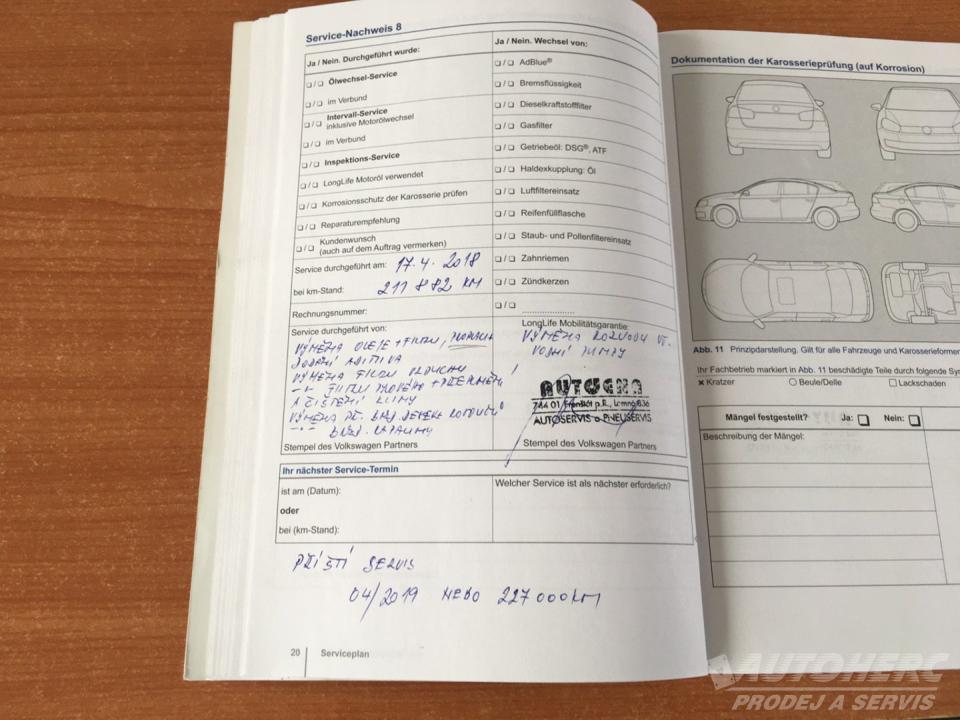 Service-Nachweis 8
Ja / Nein. Durchgeführt wurde:
❏/❏ Ölwechsel-Service
❏/❏ im Verbund
❏/❏ Intervall-Service
inklusive Motorölwechsel
❏/❏ im Verbund
❏/❏ Inspektions-Service
❏/❏ LongLife Motoröl verwendet
❏/❏ Korrosionsschutz der Karosserie prüfen
❏/❏ Reparaturempfehlung
❏/❏ Kundenwunsch
(auch auf dem Auftrag vermerken)
Service durchgeführt am: 17.4.2018
bei km-Stand: 211 882 KM
Rechnungsnummer:
Service durchgeführt von:
VÝMĚNA OLEJE + FILTRU,
DODÁNÍ ADITIVA
VÝMĚNA FILTRU VZDUCHU
-- FILTRU PYLOVÉHO +
A ČIŠTĚNÍ KLIMY
VÝMĚNA PŘ. BRZ. DESEK
--- BRZD. KAPALINY
Stempel des Volkswagen Partners
Ja / Nein. Wechsel von:
❏/❏ AdBlue®
❏/❏ Bremsflüssigkeit
❏/❏ Dieselkraftstofffilter
❏/❏ Gasfilter
❏/❏ Getriebeöl: DSG®, ATF
❏/❏ Haldexkupplung: Öl
❏/❏ Luftfiltereinsatz
❏/❏ Reifenfüllflasche
❏/❏ Staub- und Pollenfiltereinsatz
❏/❏ Zahnriemen
❏/❏ Zündkerzen
❏/❏ ....................
LongLife Mobilitätsgarantie:
VÝMĚNA ROZVODU VČ.
VODNÍ PUMPY
744 01 Frenštát p.R., Lomná 636
AUTOSERVIS a PNEUSERVIS
Stempel des Volkswagen Partners
Ihr nächster Service-Termin
ist am (Datum):
oder
bei (km-Stand):
Welcher Service ist als nächster erforderlich?
PŘÍŠTÍ SERVIS
04/2019 NEBO 227 000 KM
20 Serviceplan
Dokumentation der Karosserieprüfung (auf Korrosion)
Abb. 11 Prinzipdarstellung. Gilt für alle Fahrzeuge und Karosserieformen
Ihr Fachbetrieb markiert in Abb. 11 beschädigte Teile durch folgende Sy
× Kratzer ○ Beule/Delle ❏ Lackschaden
Mängel festgestellt? Ja: ❏ Nein: ❏
Beschreibung der Mängel:
AUTOHERC
PRODEJ A SERVIS